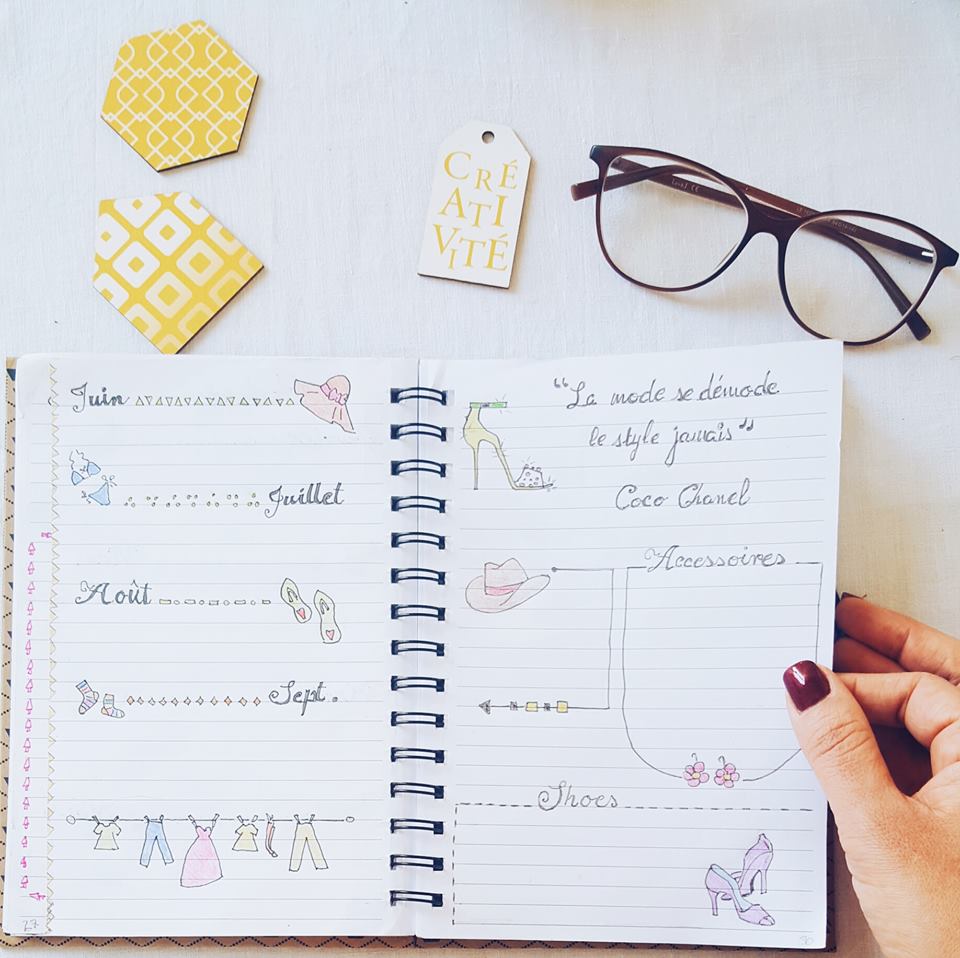 CRÉ
ATI
VITÉ
Juin
Juillet
Août
Sept.
27
“La mode se démode
le style jamais”
Coco Chanel
Accessoires
Shoes